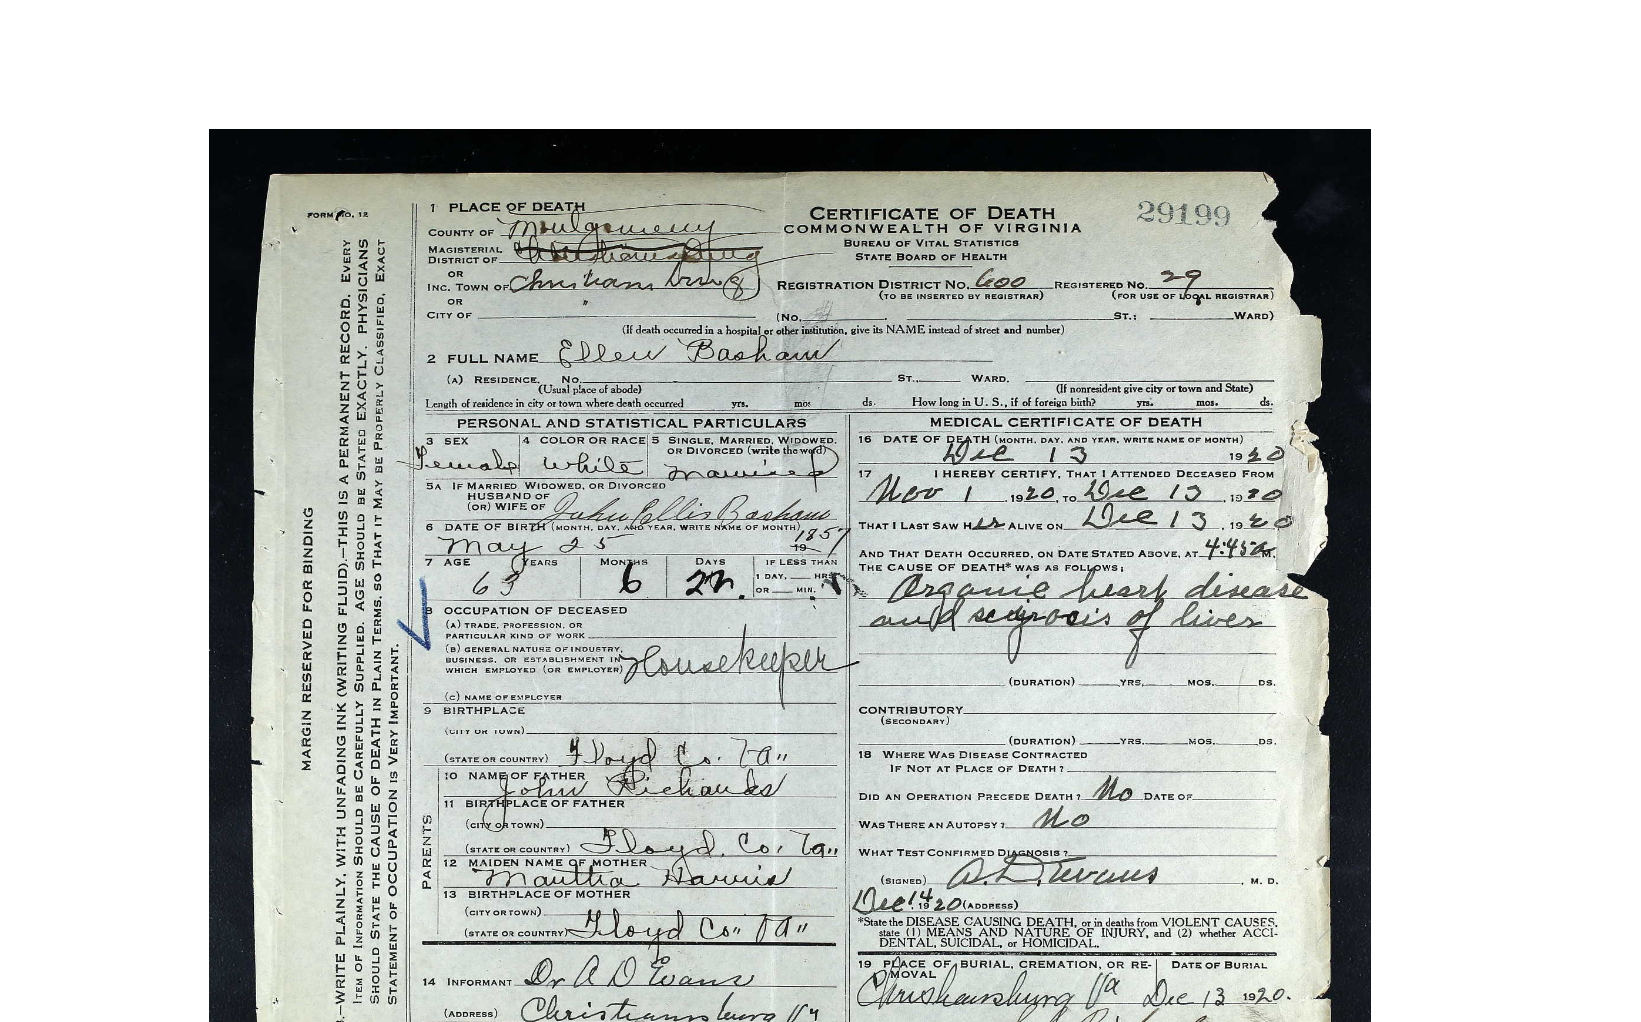 FORM NO. 12
MARGIN RESERVED FOR BINDING
—WRITE PLAINLY, WITH UNFADING INK (WRITING FLUID).—THIS IS A PERMANENT RECORD. EVERY
ITEM OF INFORMATION SHOULD BE CAREFULLY SUPPLIED. AGE SHOULD BE STATED EXACTLY. PHYSICIANS
SHOULD STATE THE CAUSE OF DEATH IN PLAIN TERMS, SO THAT IT MAY BE PROPERLY CLASSIFIED. EXACT
STATEMENT OF OCCUPATION IS VERY IMPORTANT.
1 PLACE OF DEATH
COUNTY OF Montgomery
MAGISTERIAL
DISTRICT OF Christiansburg
OR
INC. TOWN OF Christiansburg
OR "
CITY OF
CERTIFICATE OF DEATH
COMMONWEALTH OF VIRGINIA
BUREAU OF VITAL STATISTICS
STATE BOARD OF HEALTH
29199
REGISTRATION DISTRICT NO. 600 REGISTERED NO. 29
(TO BE INSERTED BY REGISTRAR) (FOR USE OF LOCAL REGISTRAR)
(NO. ST.; WARD)
(If death occurred in a hospital or other institution, give its NAME instead of street and number)
2 FULL NAME Ellen Basham
(A) RESIDENCE. NO. ST., WARD.
(Usual place of abode) (If nonresident give city or town and State)
Length of residence in city or town where death occurred yrs. mos ds. How long in U. S., if of foreign birth? yrs. mos. ds.
PERSONAL AND STATISTICAL PARTICULARS
3 SEX 4 COLOR OR RACE 5 SINGLE, MARRIED, WIDOWED,
OR DIVORCED (write the word)
Female White Married
5A IF MARRIED WIDOWED, OR DIVORCED
HUSBAND OF
(OR) WIFE OF John Ellis Basham
6 DATE OF BIRTH (MONTH, DAY, AND YEAR, WRITE NAME OF MONTH)
May 25 1857
19
7 AGE YEARS MONTHS DAYS IF LESS THAN
1 DAY, HRS
OR MIN.
63 6 22
8 OCCUPATION OF DECEASED
(A) TRADE, PROFESSION, OR
PARTICULAR KIND OF WORK
(B) GENERAL NATURE OF INDUSTRY,
BUSINESS, OR ESTABLISHMENT IN
WHICH EMPLOYED (OR EMPLOYER) Housekeeper
(C) NAME OF EMPLOYER
9 BIRTHPLACE
(CITY OR TOWN)
(STATE OR COUNTRY) Floyd Co. Va"
PARENTS
10 NAME OF FATHER
John Richards
11 BIRTHPLACE OF FATHER
(CITY OR TOWN)
(STATE OR COUNTRY) Floyd. Co. Va"
12 MAIDEN NAME OF MOTHER
Martha Harris
13 BIRTHPLACE OF MOTHER
(CITY OR TOWN)
(STATE OR COUNTRY) Floyd Co" Va"
14 INFORMANT Dr A D Evans
(ADDRESS) Christiansburg Va
MEDICAL CERTIFICATE OF DEATH
16 DATE OF DEATH (MONTH, DAY, AND YEAR, WRITE NAME OF MONTH)
Dec 13 1920
17 I HEREBY CERTIFY, THAT I ATTENDED DECEASED FROM
Nov 1, 1920, TO Dec 13, 1920
THAT I LAST SAW HER ALIVE ON Dec 13, 1920
AND THAT DEATH OCCURRED, ON DATE STATED ABOVE, AT 4:45 a M.
THE CAUSE OF DEATH* WAS AS FOLLOWS:
Organic heart disease
and of liver
(DURATION) YRS. MOS. DS.
CONTRIBUTORY
(SECONDARY)
(DURATION) YRS. MOS. DS.
18 WHERE WAS DISEASE CONTRACTED
IF NOT AT PLACE OF DEATH?
DID AN OPERATION PRECEDE DEATH? No DATE OF
WAS THERE AN AUTOPSY? No
WHAT TEST CONFIRMED DIAGNOSIS?
(SIGNED) A. D. Evans, M. D.
Dec 14 1920 (ADDRESS)
*State the DISEASE CAUSING DEATH, or in deaths from VIOLENT CAUSES,
state (1) MEANS AND NATURE OF INJURY, and (2) whether ACCI-
DENTAL, SUICIDAL, or HOMICIDAL.
19 PLACE OF BURIAL, CREMATION, OR RE-
MOVAL DATE OF BURIAL
Christiansburg Va Dec 13 1920.